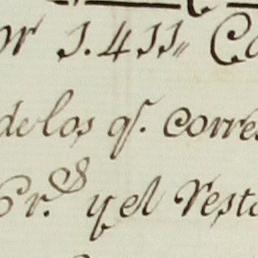 or 1.411„ Co
delos q.̃ corres
Cr.s y el resto